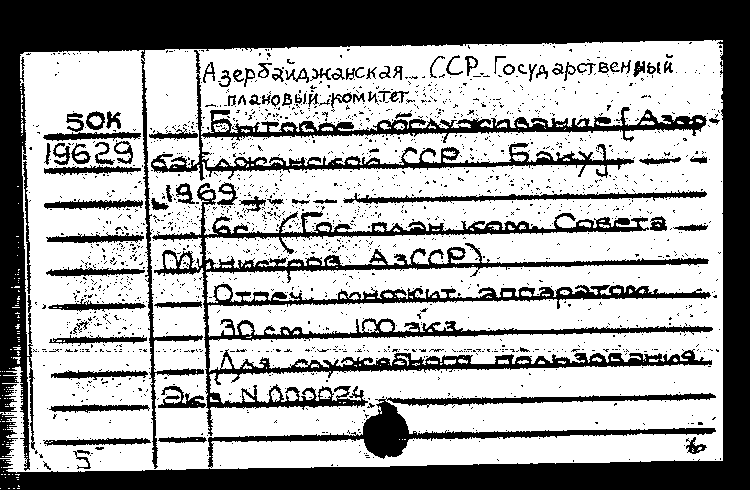 Азербайджанская ССР Государственный
плановый комитет
50К Бытовое обслуживание [Азер-
19629 байджанской ССР. Баку]
1969
6с. (Гос план ком. Совета
Министров АзССР)
Отпеч. множит. аппаратом.
30 см. 100 экз.
Для служебного пользования.
Экз. N 000024
Б